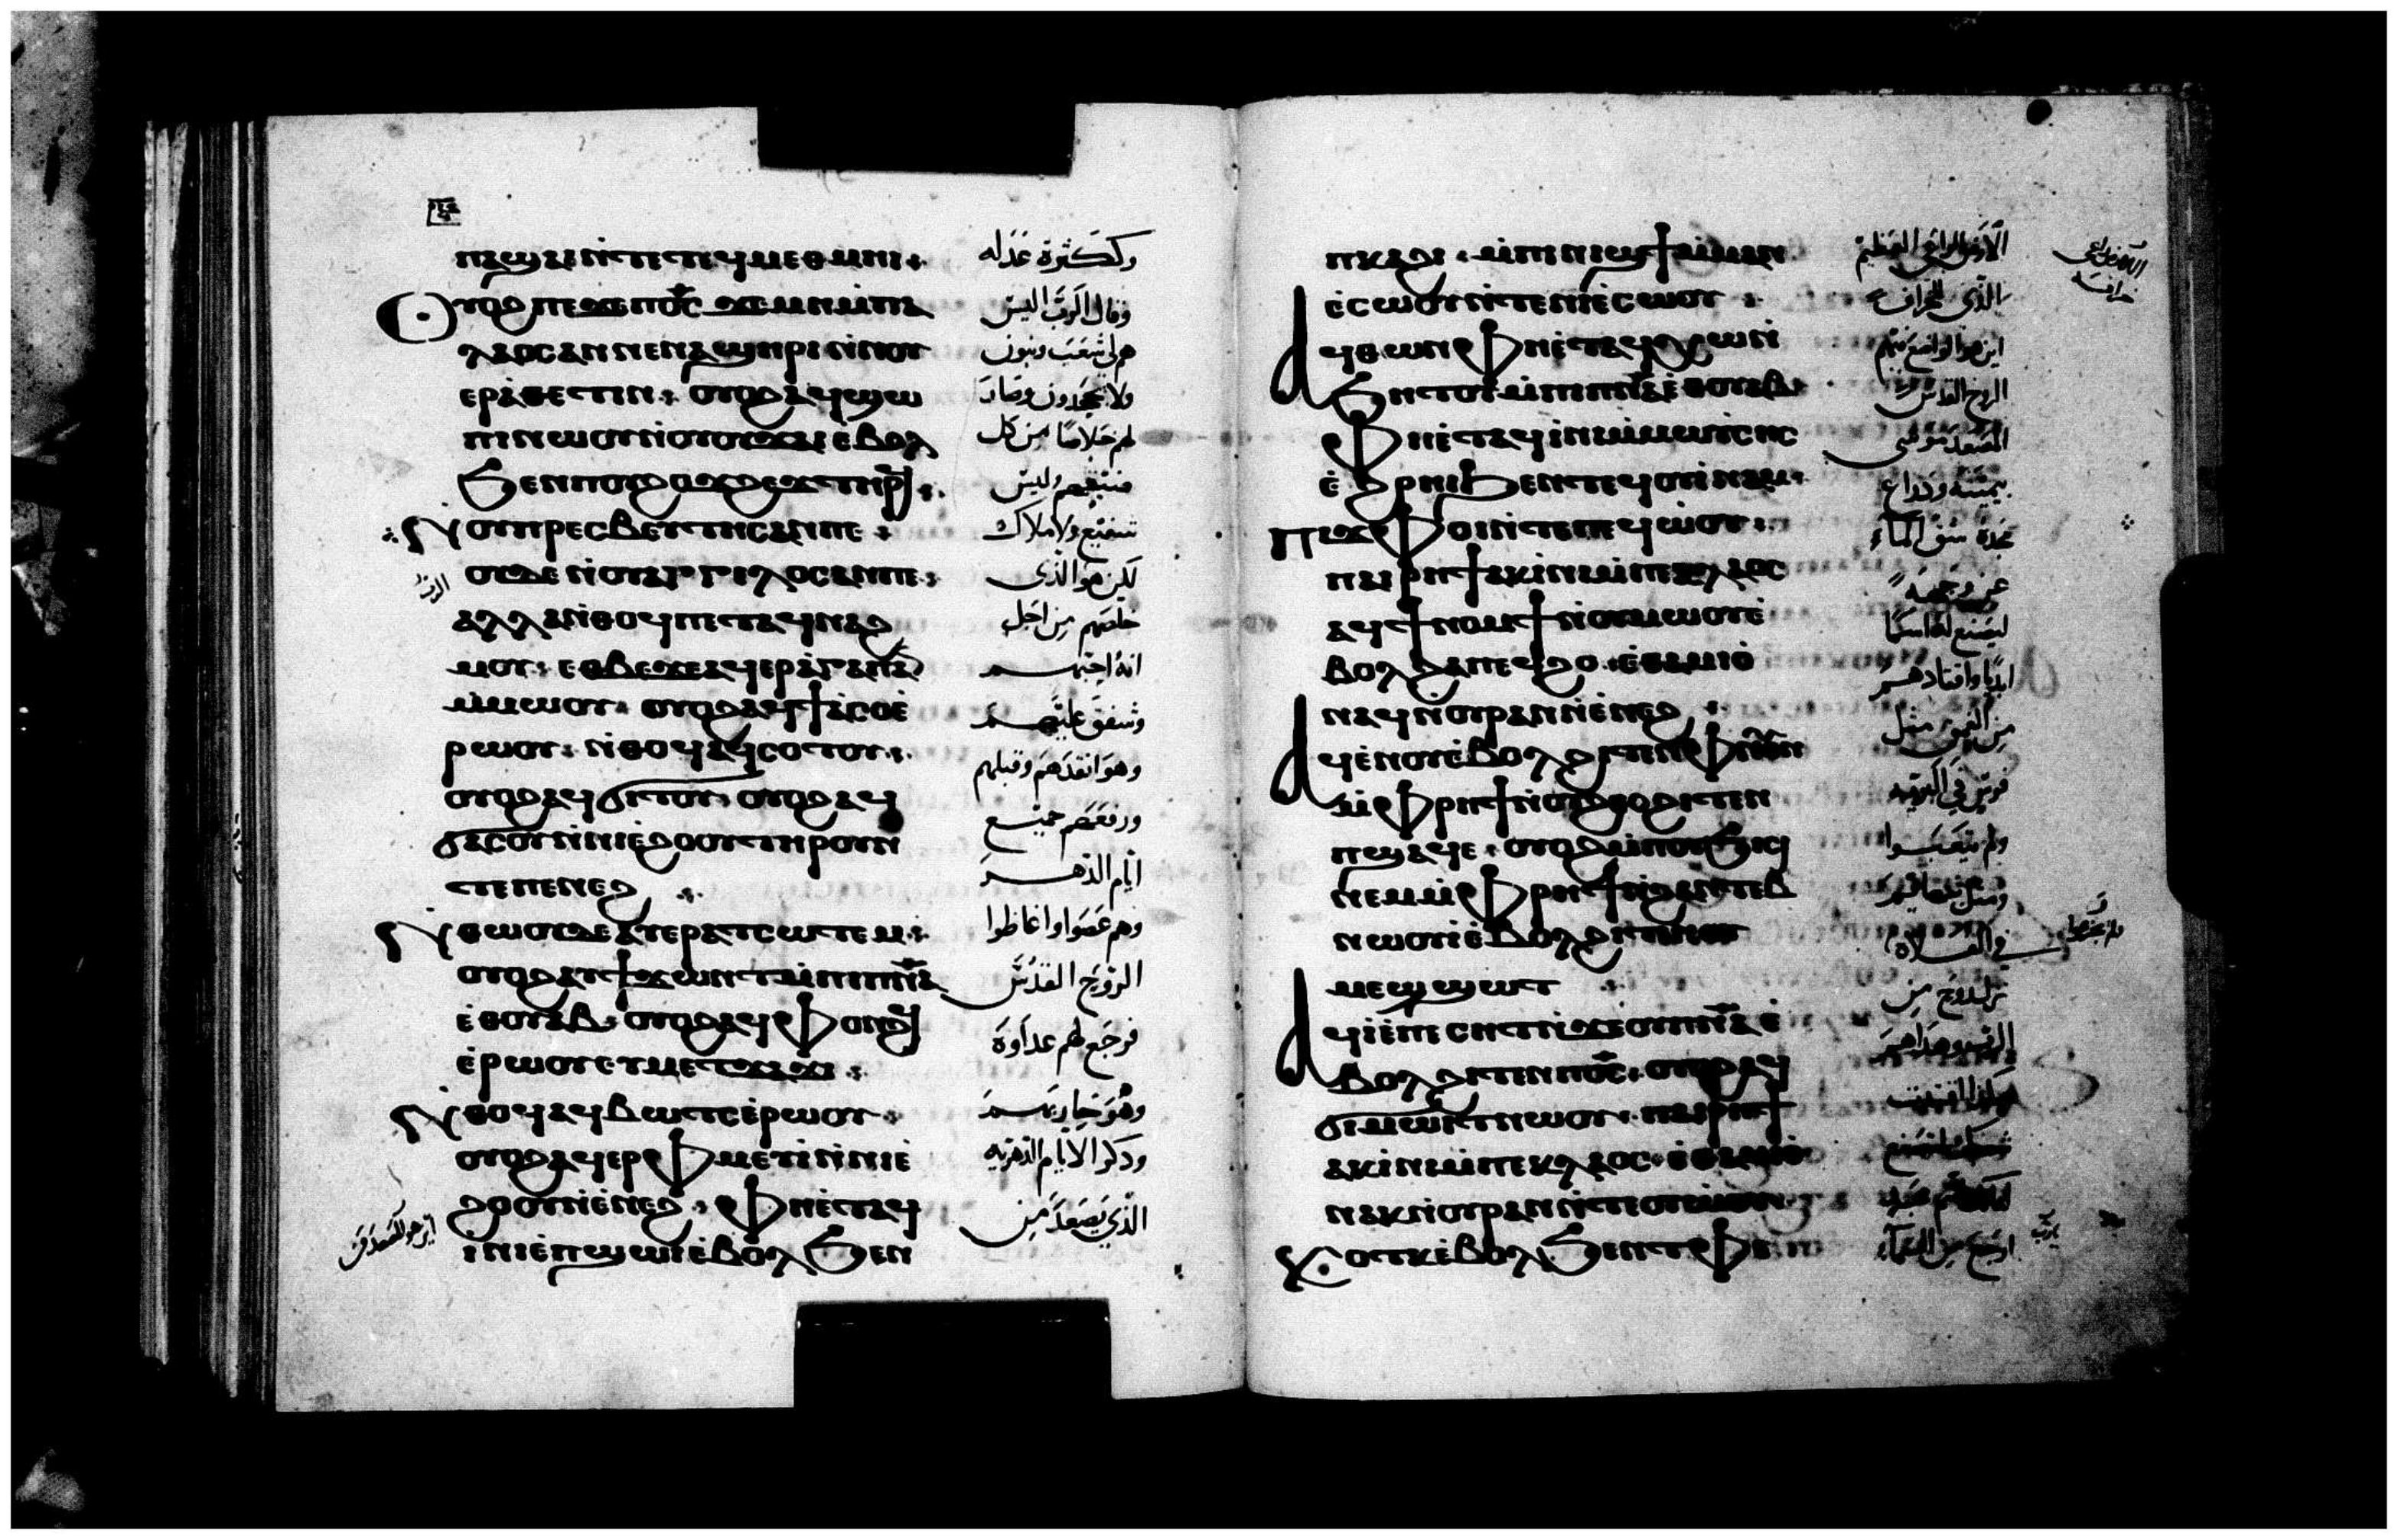 ⲡⲁϣⲁⲓ ⲛ̀ⲧⲉ ⲧⲉϥⲙⲉⲑⲙⲏⲓ
ⲟⲩⲟϩ ⲡⲉϫⲉ ⲡϭⲥ ϫⲉ ⲙⲏ ⲙ̀ⲡⲁ
ⲗⲁⲟⲥ ⲁⲛ ⲛⲉ ⲛⲁϣⲏⲣⲓ ⲛ̀ⲛⲟⲩ
ⲉⲣⲁ̀ⲑⲉⲧⲓⲛ ⲟⲩⲟϩ ⲁϥϣⲱ
ⲡⲓ ⲛⲱⲟⲩ ⲛ̀ⲟⲩⲟⲩϫⲁⲓ ⲉⲃⲟⲗ
ϧⲉⲛ ⲡⲟⲩϩⲟϫϩⲉϫ ⲧⲏⲣϥ
ⲛⲟⲩⲡⲣⲉⲥⲃⲉⲩⲧⲏⲥ ⲁⲛ ⲡⲉ
ⲟⲩⲇⲉ ⲛ̀ⲟⲩⲁⲅⲅⲉⲗⲟⲥ ⲁⲛ ⲡⲉ
ⲁⲗⲗⲁ ⲛ̀ⲑⲟϥ ⲡⲉⲧⲁϥⲛⲁϩ
ⲙⲟⲩ ⲉⲑⲃⲉϫⲉ ⲁϥⲉⲣⲁ̀ⲅⲁⲡⲁⲛ
ⲙ̀ⲙⲱⲟⲩ ⲟⲩⲟϩ ⲁϥϯⲁ̀ⲥⲟ ⲉ̀
ⲣⲱⲟⲩ ⲛ̀ⲑⲟϥ ⲁϥⲥⲟⲧⲟⲩ
ⲟⲩⲟϩ ⲁϥϭⲓⲧⲟⲩ ⲟⲩⲟϩ ⲁϥ
ϭⲁⲥⲟⲩ ⲛ̀ⲛⲓⲉ̀ϩⲟⲟⲩ ⲧⲏⲣⲟⲩ ⲛ̀
ⲧⲉ ⲡⲉⲛⲉϩ
ⲛ̀ⲑⲱⲟⲩ ⲇⲉ ⲁⲩⲉⲣⲁⲧⲥⲱⲧⲉⲙ
ⲟⲩⲟϩ ⲁⲩϯϫⲱⲛⲧ ⲙ̀ⲡⲓⲡⲛⲁ
ⲉ̀ⲑⲟⲩⲁⲃ ⲟⲩⲟϩ ⲁϥⲫⲟⲛϩϥ
ⲉ̀ⲣⲱⲟⲩ ⲉⲩⲙⲉⲧϫⲁϫⲓ
ⲛ̀ⲑⲟϥ ⲁϥⲃⲱⲧⲥ ⲉ̀ⲣⲱⲟⲩ
ⲟⲩⲟϩ ⲁϥⲉⲣⲫⲙⲉⲩⲓ̀ ⲛ̀ⲛⲓⲉ̀
ϩⲟⲟⲩ ⲛ̀ⲉ̀ⲛⲉϩ ⲫⲏ ⲉ̀ⲧⲁϥ
ⲓ̀ⲛⲓ ⲉ̀ⲡϣⲱⲓ ⲉ̀ⲃⲟⲗ ϧⲉⲛ
وكثرة عدله
وقال الرب اليس
هم لي شعب وبنون
ولا يجحدون وصار
لهم خلاصًا من كل
وليس
شفيع ولا ملاك
لكن هو الذي
خلصهم من اجل
انه احبهم
وشفق عليهم
وهو انقذهم وقبلهم
ورفعهم جميع
ايام الدهر
وهم عصوا واغاظوا
الروح القدس
فرجع لهم عداوة
وهو حاربهم
وذكر الايام الدهرية
الذي يصعد من
ⲡⲕⲁϩⲓ ⲙ̀ⲡⲓⲛⲓϣϯ ⲙ̀ⲙⲁⲛ
ⲉ̀ⲥⲱⲟⲩ ⲛ̀ⲧⲉ ⲛⲓⲉ̀ⲥⲱⲟⲩ
ⲁϥⲑⲱⲛ ⲫⲏ ⲉ̀ⲧⲁϥⲭⲱ ⲛ̀
ϧⲏⲧⲟⲩ ⲙ̀ⲡⲓⲡⲛⲁ ⲉ̀ⲑⲟⲩⲁⲃ
ⲫⲏ ⲉ̀ⲧⲁϥⲓ̀ⲛⲓ ⲙ̀ⲙⲱⲩ̀ⲥⲏⲥ
ⲉ̀ϩⲣⲏⲓ ϧⲉⲛ ⲧⲉϥⲟⲩⲓ̀ⲛⲁⲙ
ⲡⲉϫⲫⲟⲓ ⲛ̀ⲧⲉ ⲡⲉϥⲱ̀ⲟⲩ
ⲡⲁⲓⲣⲏϯ ⲁⲕⲓ̀ⲛⲓ ⲙ̀ⲡⲉⲕⲗⲁⲟⲥ
ⲁϥϯⲛⲟⲙϯ ⲛ̀ⲟⲩⲙⲱⲟⲩ ⲉ̀
ⲃⲟⲗ ϩⲁ ⲡⲉϥϩⲟ ⲉ̀ⲑⲁⲙⲓⲟ̀
ⲛⲁϥ ⲛ̀ⲟⲩⲣⲁⲛ ⲛ̀ⲉ̀ⲛⲉϩ
ⲁϥⲉ̀ⲛⲟⲩ ⲉ̀ⲃⲟⲗ ϩⲓⲧⲉⲛ ⲫⲛⲟⲩⲛ
ⲙ̀ⲫⲣⲏϯ ⲛ̀ⲟⲩϩⲑⲟ ϩⲓⲧⲉⲛ
ⲡϣⲁϥⲉ ⲟⲩⲟϩ ⲙ̀ⲡⲟⲩϧⲓⲥⲓ
ⲛⲉⲙ ⲙ̀ⲫⲣⲏϯ ⲛ̀ϩⲁⲛⲧⲉⲃ
ⲛⲱⲟⲩⲓ̀ ⲉ̀ⲃⲟⲗ
ⲙⲉϣϣⲱⲧ
ⲁϥⲓ̀ ⲉ̀ⲡⲉⲥⲏⲧ ⲛ̀ϫⲉ ⲟⲩⲡⲛⲁ ⲉ̀
ⲃⲟⲗ ϩⲓⲧⲉⲛ ⲡϭⲥ ⲟⲩⲟϩ ⲁϥ
ϭⲓⲙⲱⲓⲧ ⲛⲱⲟⲩ ⲡⲁⲓⲣⲏϯ
ⲁⲕⲓ̀ⲛⲓ ⲙ̀ⲡⲉⲕⲗⲁⲟⲥ ⲉ̀ⲑⲁⲙⲓⲟ̀
ⲛⲁⲕ ⲛ̀ⲟⲩⲣⲁⲛ ⲛ̀ⲧⲉ ⲟⲩⲱ̀ⲟⲩ
ⲕⲟⲧⲕ ⲉ̀ⲃⲟⲗ ϧⲉⲛ ⲧⲫⲉ
الارض الراعي العظيم
الذي للخراف
اين هو الواضع فيهم
الروح القدس
المصعد موسى
بيمينه وذراع
مجده شق الماء
عن وجهه
ليصنع له اسمًا
ابديًا واقتادهم
من العمق مثل
فرس في البرية
ولم يتعبوا
نزل روح من
ارجع من السماء